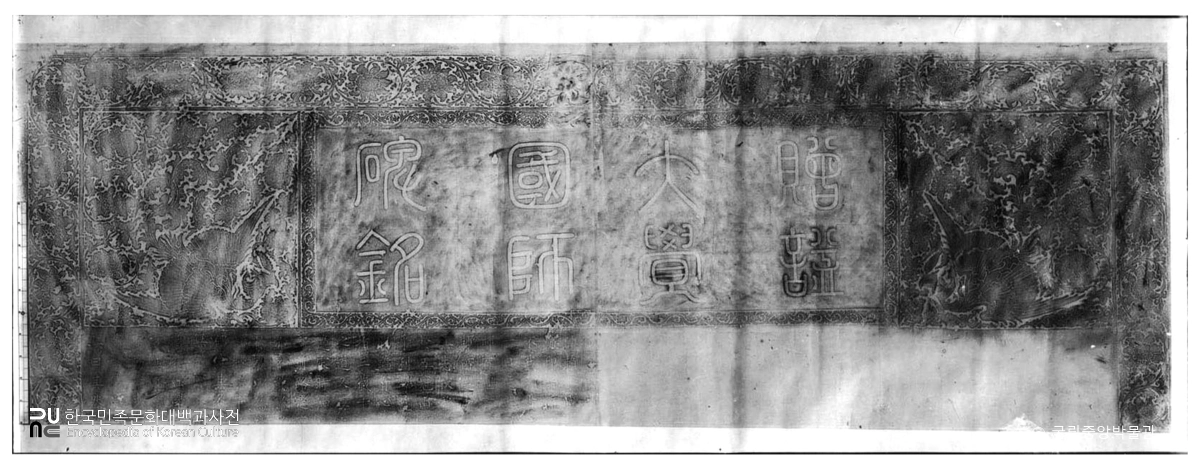 贈諡
大覺
國師
碑銘
한국민족문화대백과사전
Encyclopedia of Korean Culture
국립중앙박물관